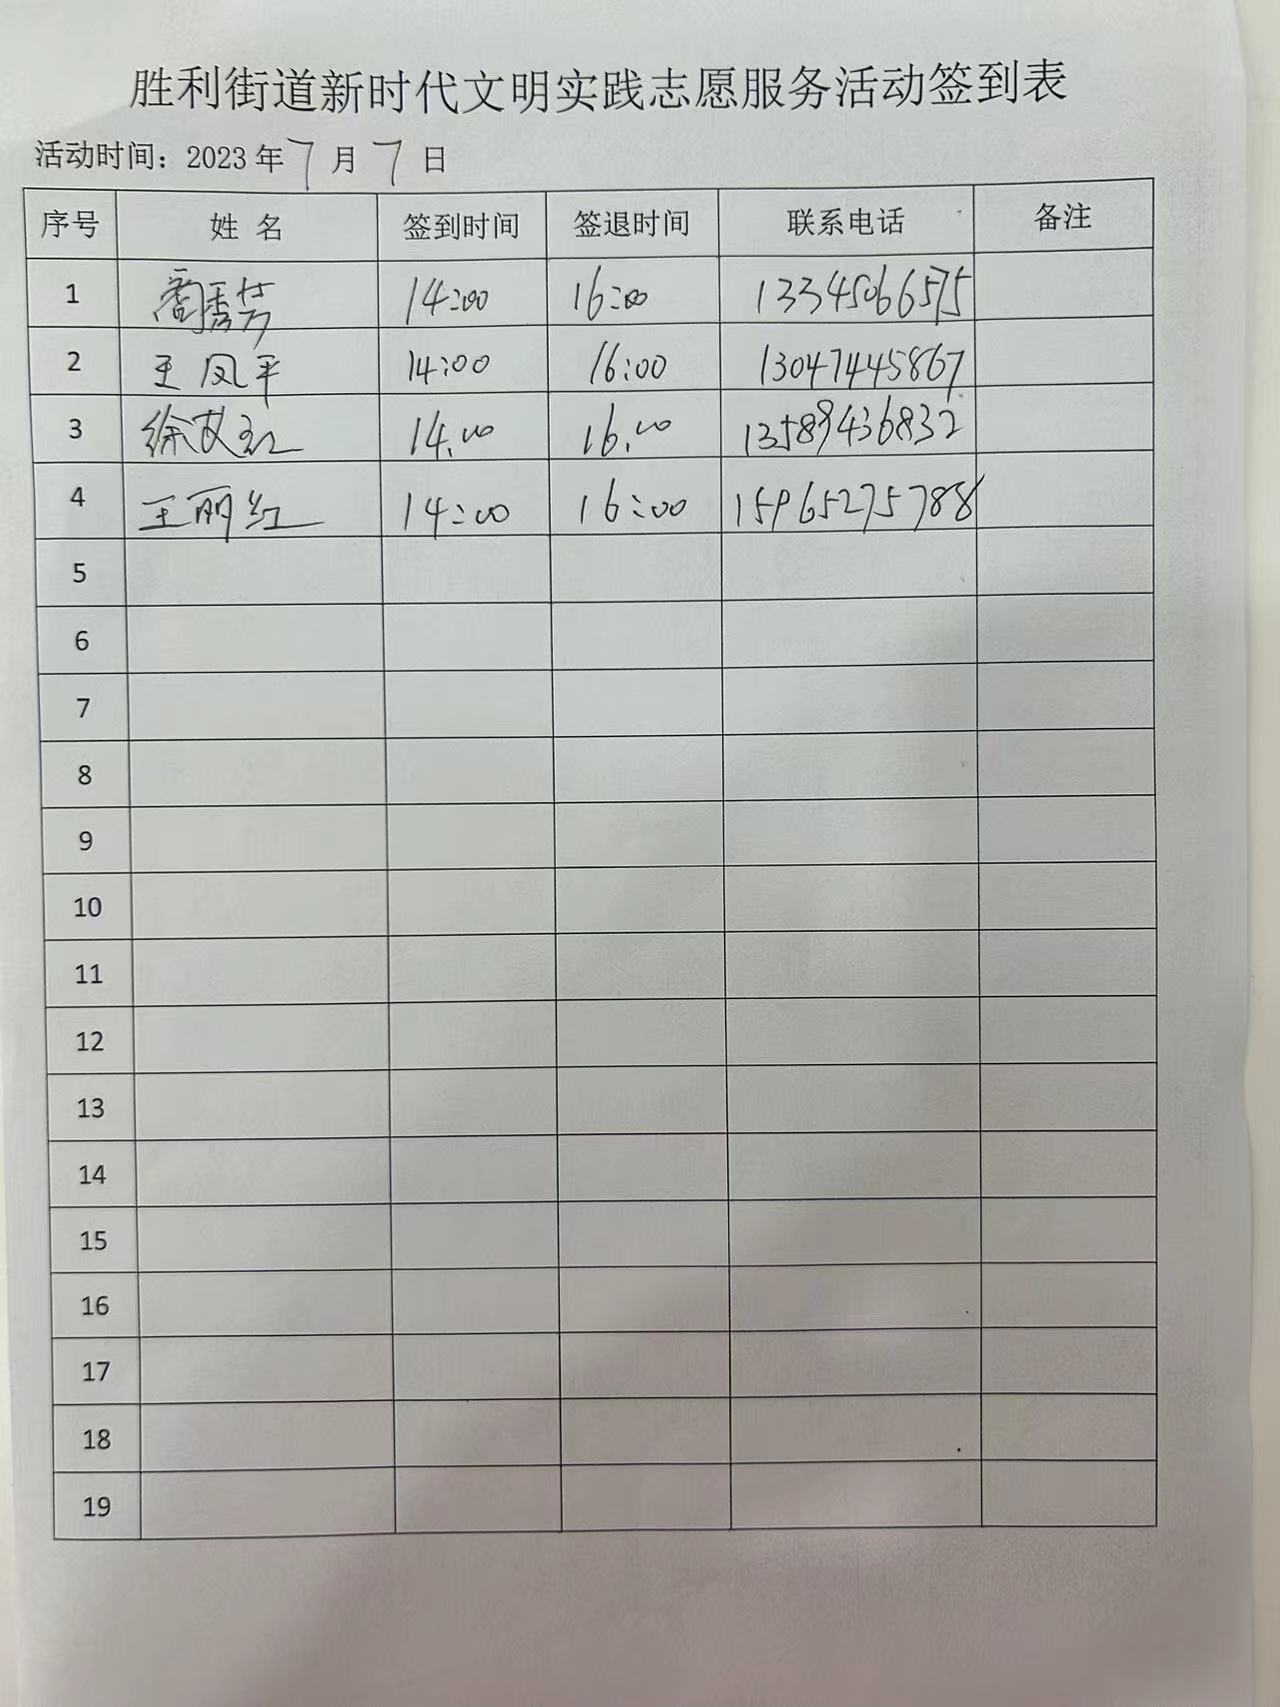 胜利街道新时代文明实践志愿服务活动签到表
活动时间：2023年7月7日
序号 姓 名 签到时间 签退时间 联系电话 备注
1 14:00 16:00 13345066575
2 王凤平 14:00 16:00 13047445867
3 徐 红 14.00 16.00 13589436832
4 王丽红 14:00 16:00 15965275788
5
6
7
8
9
10
11
12
13
14
15
16
17
18
19